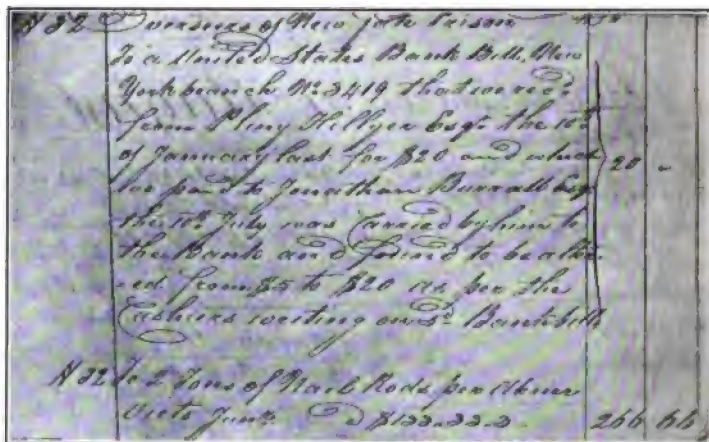 N 32 Overseers of New Gate Prison Dr
To a United States Bank Bill, New
York branch No 2419 that we recd
from Pliny Hillyer Esqr the 16th
of January last for $20 and which } 20 -
we paid to Jonathan Burrall Esqr
the July was Carried by him to
the Bank and found to be alte
-red from $5 to $20 as per the
Cashiers writing on sd Bank bill
N 32 To 2 Tons of Nail Rods per Abner
Junr 266 66